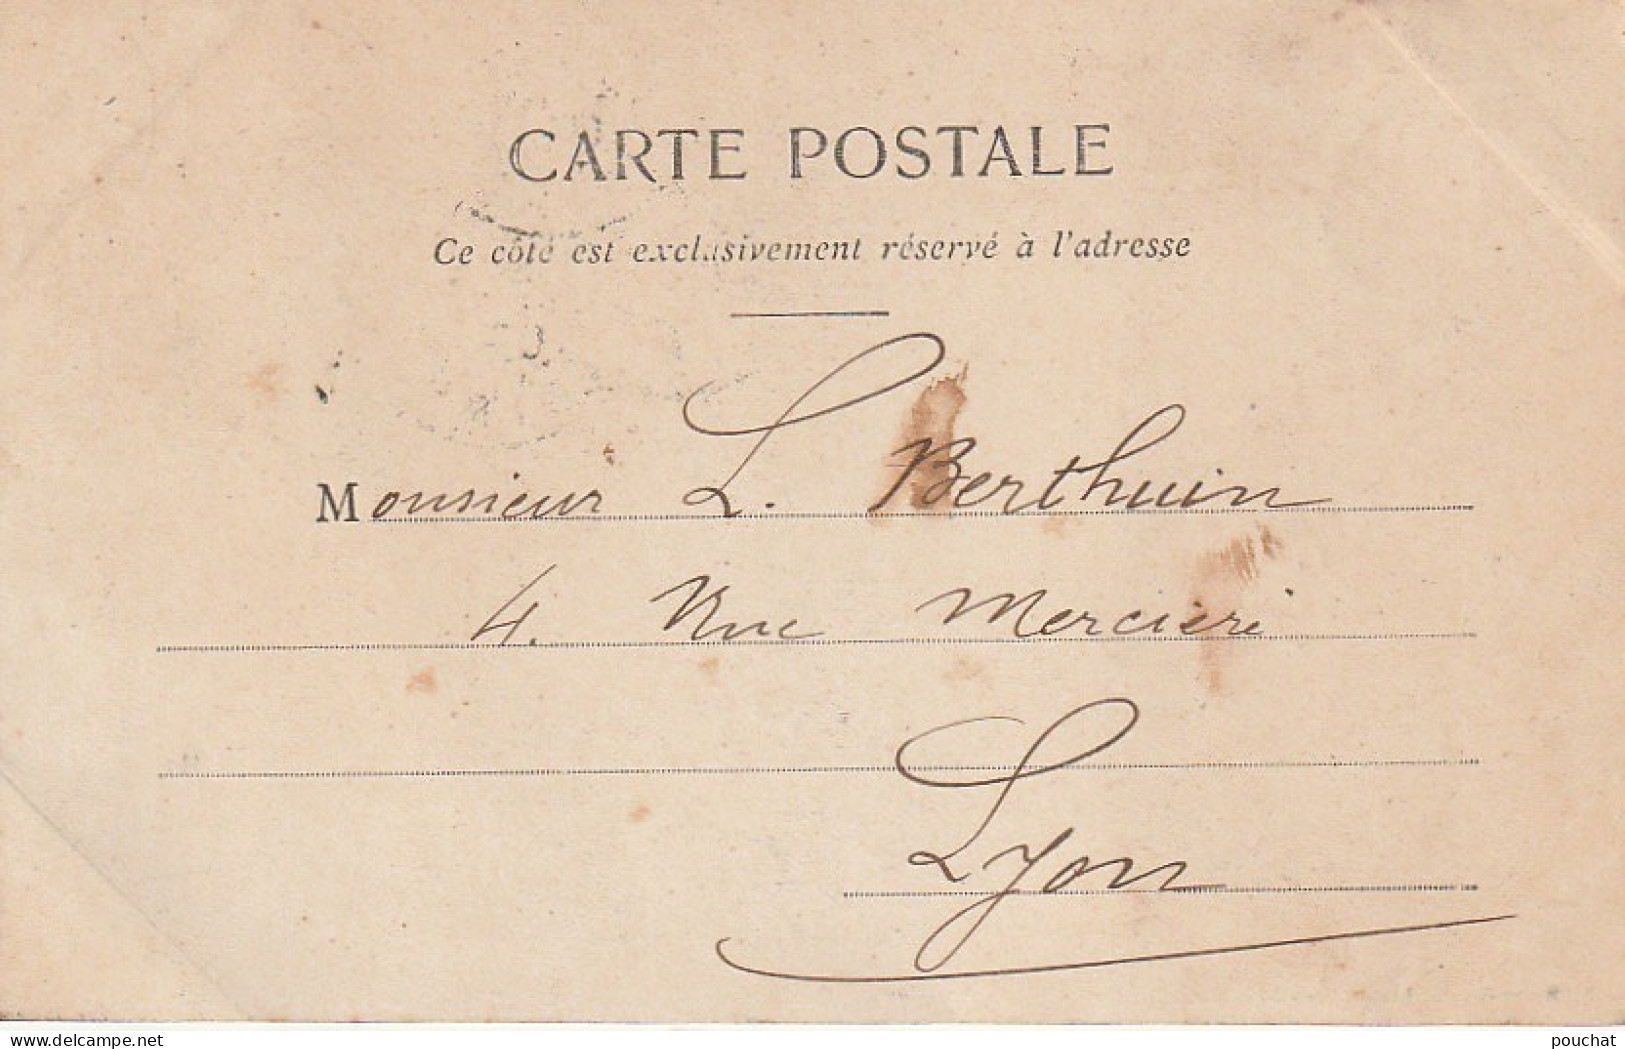 CARTE POSTALE
Ce côté est exclusivement réservé à l'adresse
Monsieur L. Berthuin
4. Rue Mercière
Lyon
delcampe.net
pouchat